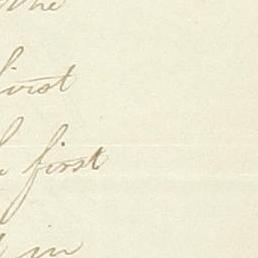 the
first
first
in